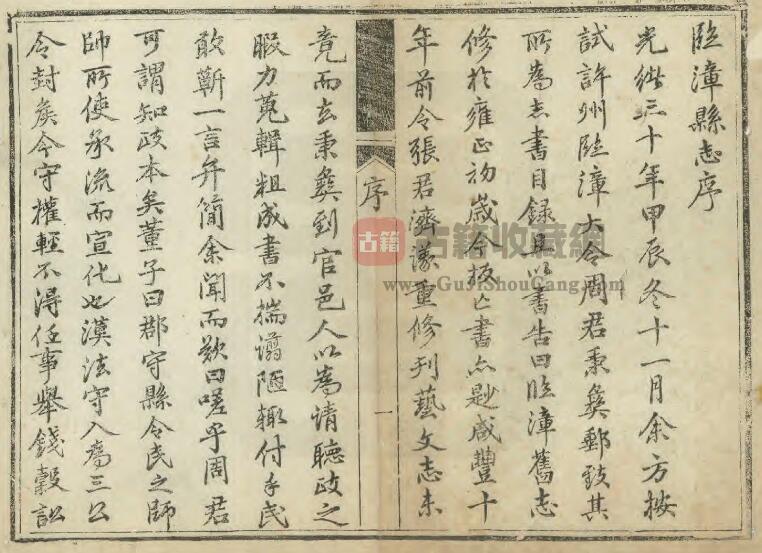 臨漳縣志序
光緒三十年甲辰冬十一月余方按
試許州臨漳大令周君秉彝郵致其
所為志書目錄且以書告曰臨漳舊志
修於雍正初歲今板亡書亦尠咸豐十
年前令張君濟重修刊藝文志未
序
一
竟而去秉彝到官邑人以為請聽政之
暇力蒐輯粗成書不揣譾陋輒付手民
敢蘄一言弁簡余聞而歎曰嗟乎周君
可謂知政本矣董子曰郡守縣令民之師
帥所使承流而宣化也漢法守入為三公
令封矦今守權輕不得任事舉錢穀訟
古籍 古籍收藏網
www.GujiShouCang.com